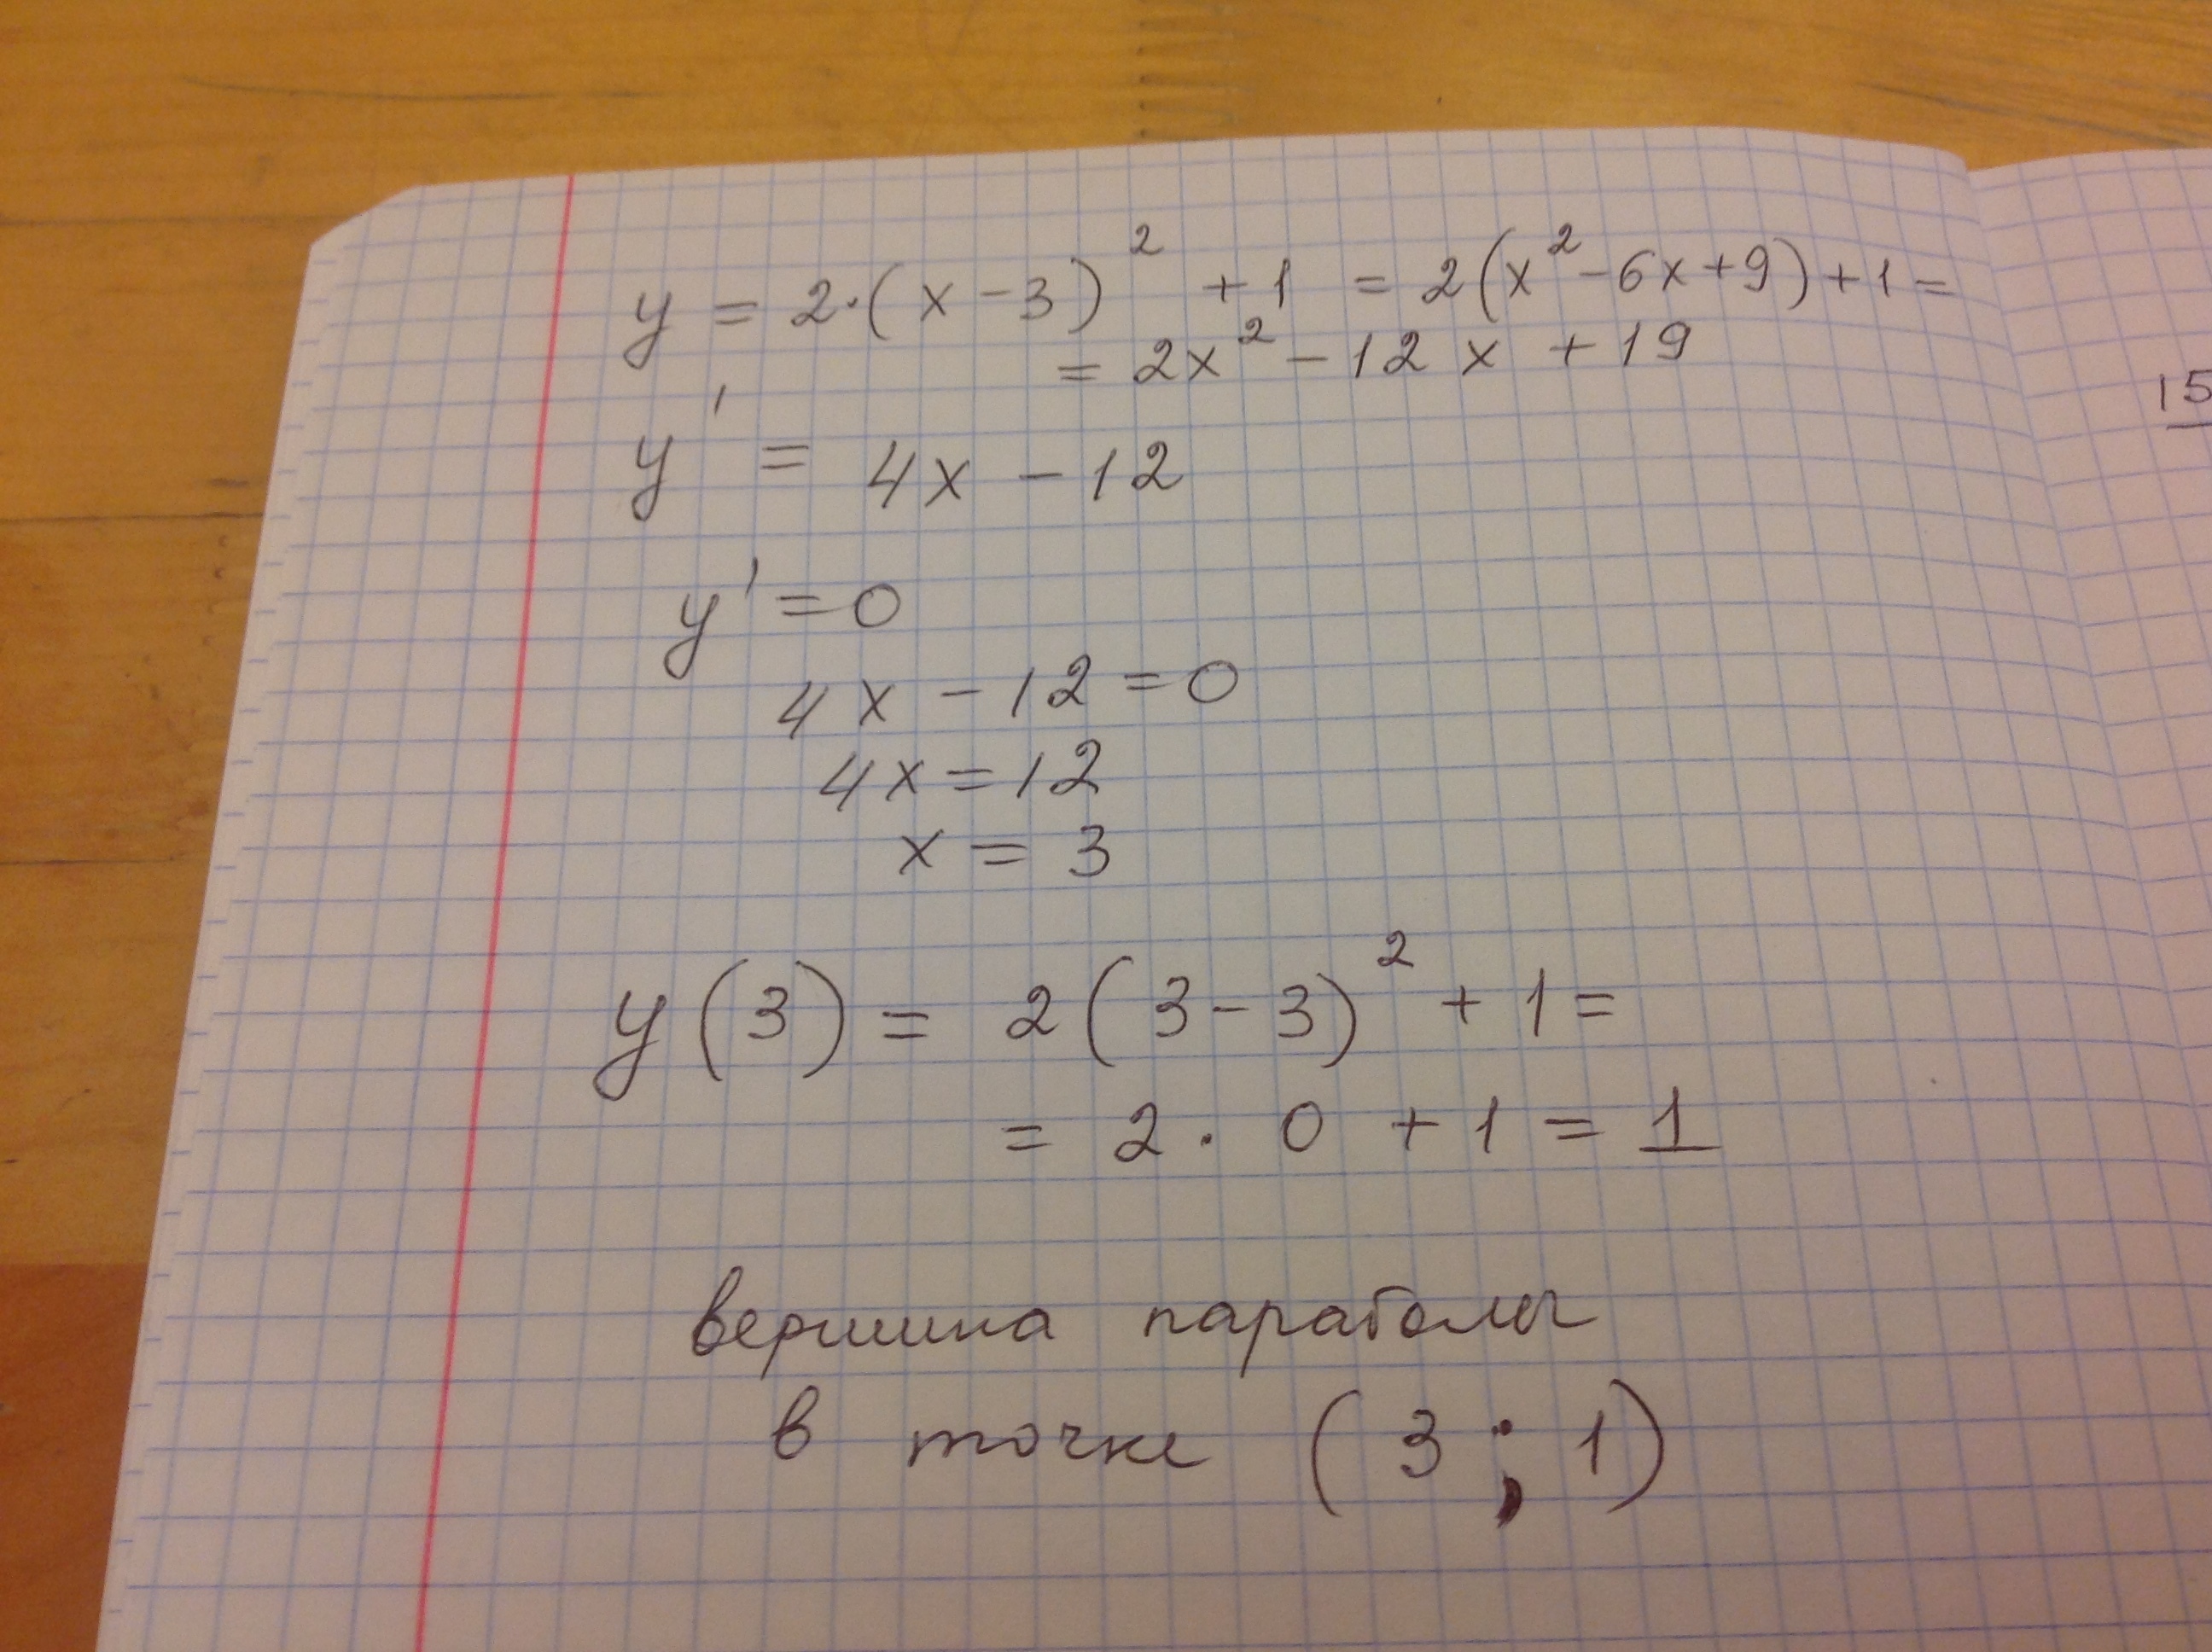 y = 2·(x-3)² + 1 = 2(x²-6x+9)+1=
= 2x² - 12x + 19
y' = 4x - 12
y' = 0
4x - 12 = 0
4x = 12
x = 3
y(3) = 2(3-3)² + 1 =
= 2 · 0 + 1 = 1
вершина параболы
в точке (3 ; 1)
15